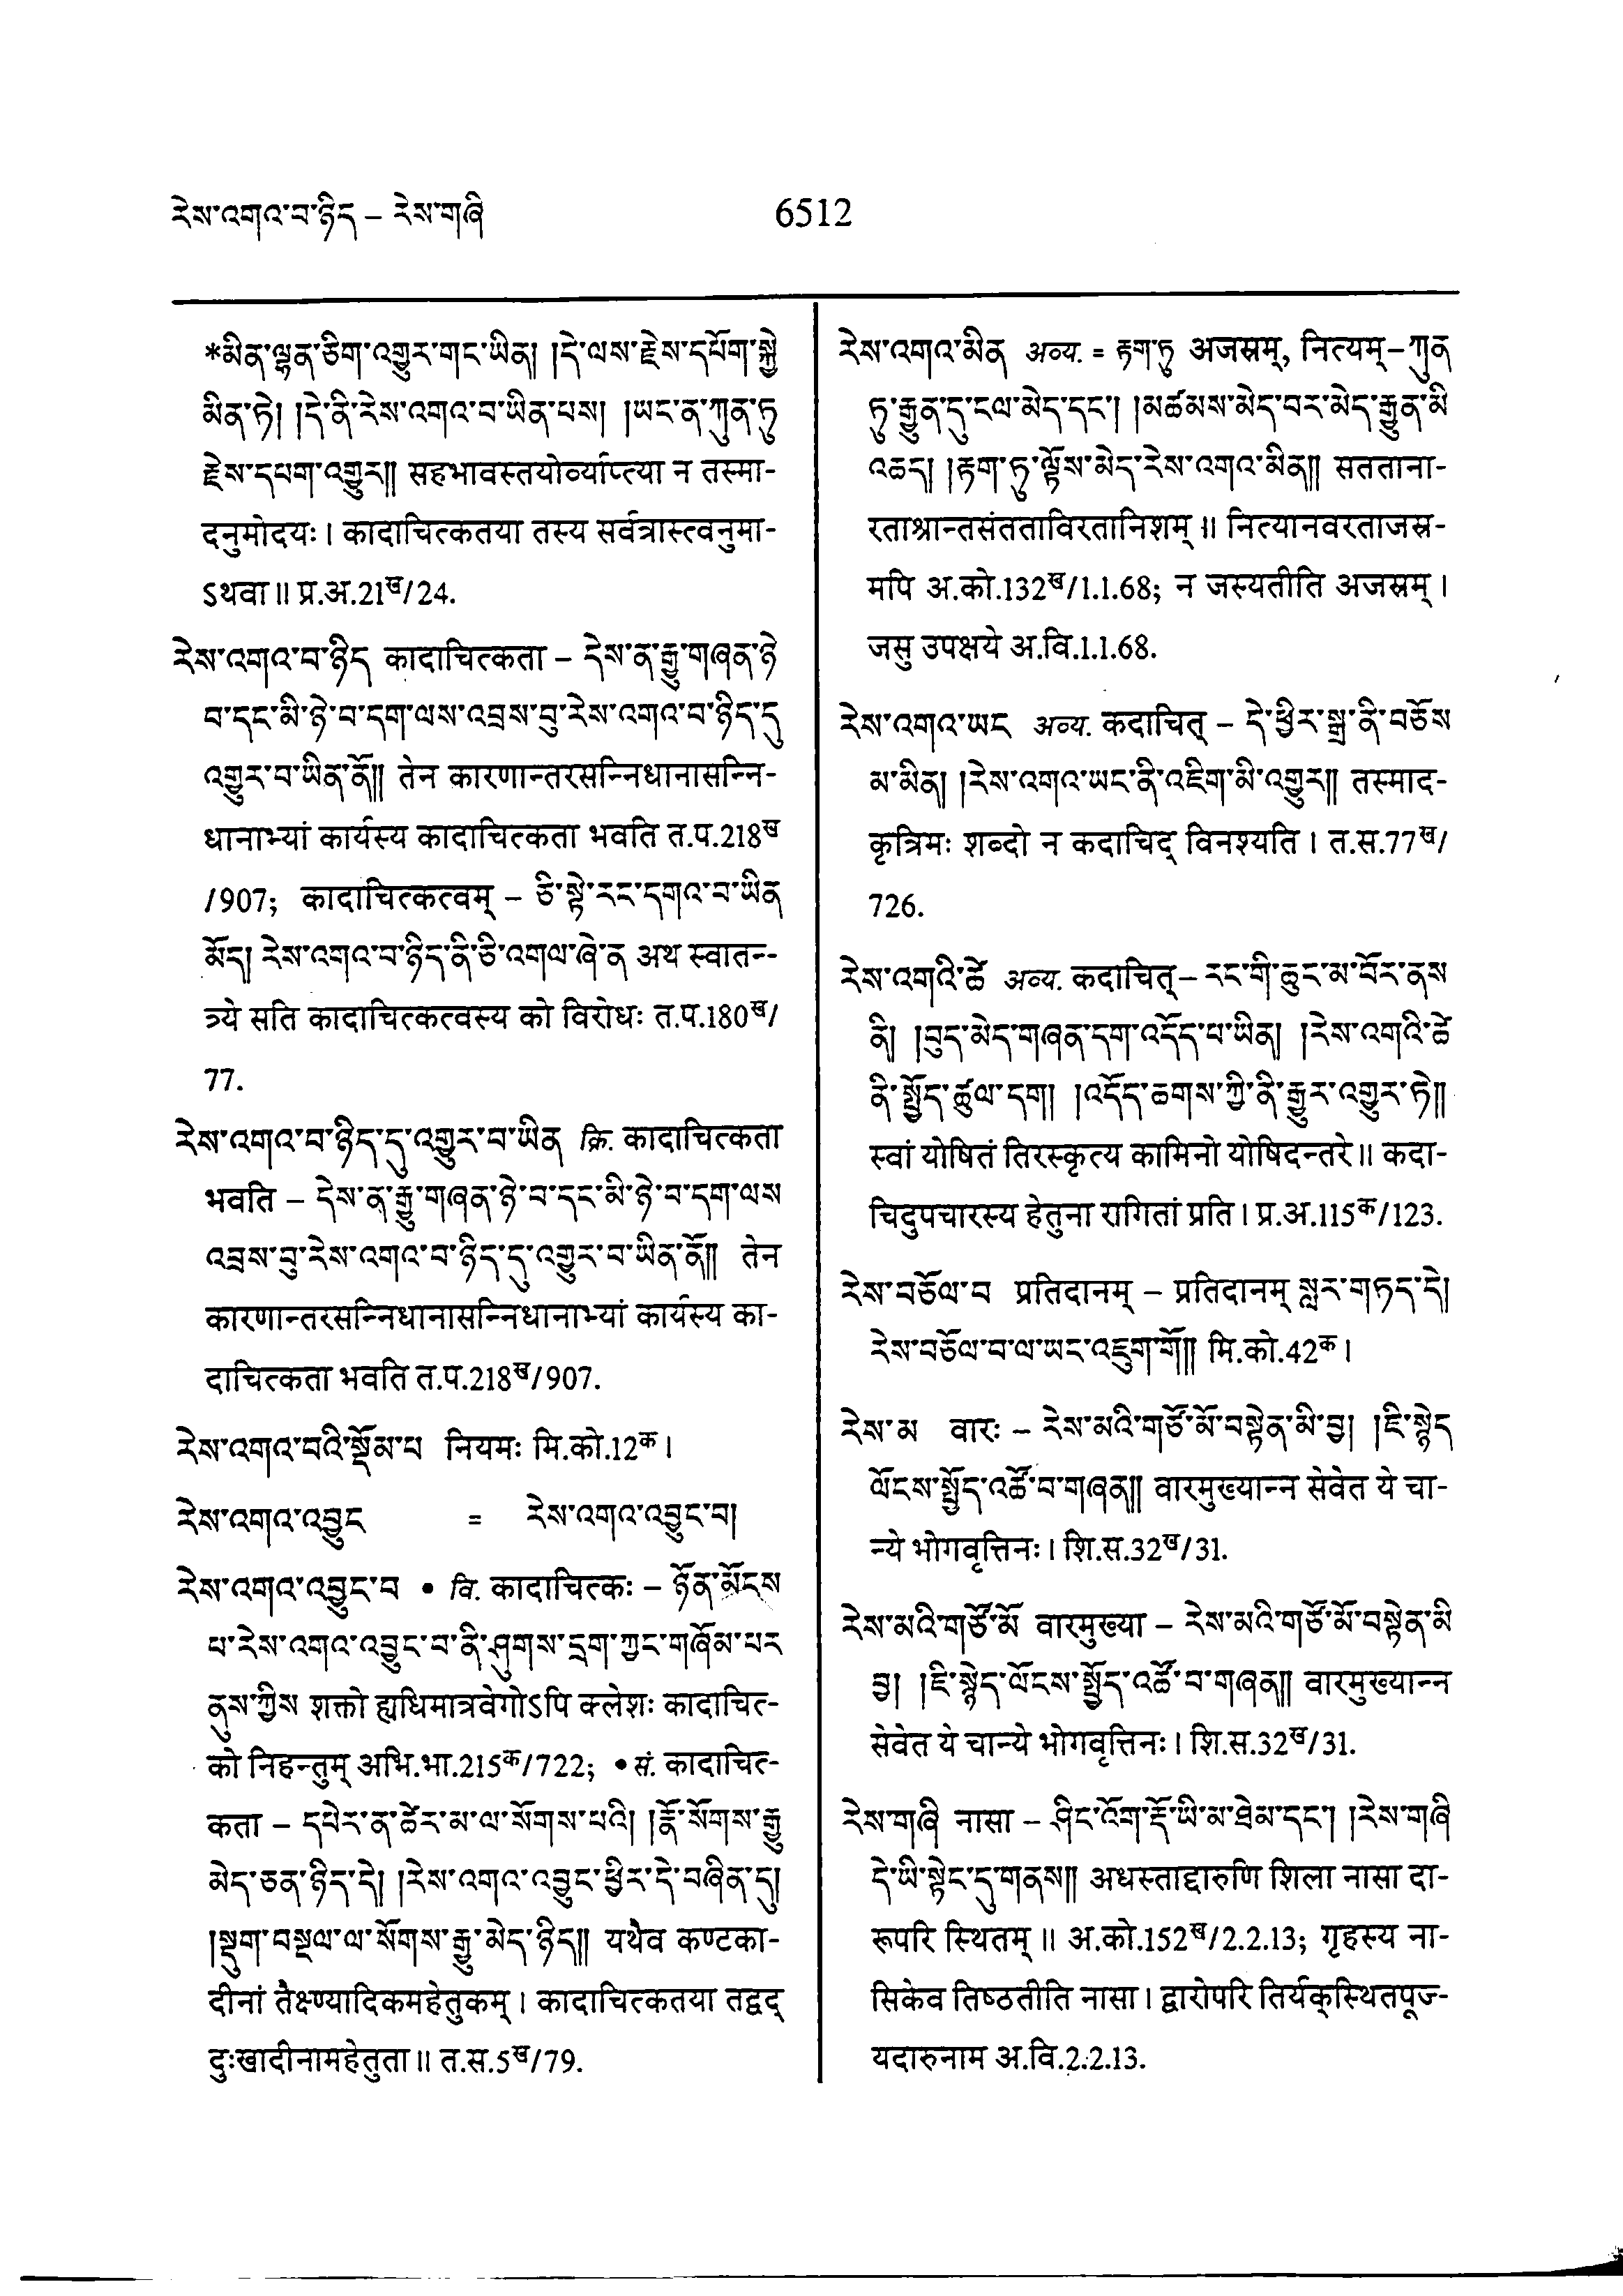 རེས་འགའ་བ་ཉིད – རེས་གཞི
6512
*མིན་ལྷན་ཅིག་འགྱུར་གང་ཡིན། །དེ་ལས་རྗེས་དཔོག་སྐྱེ
མིན་ཏེ། །དེ་ནི་རེས་འགའ་བ་ཡིན་པས། །ཡང་ན་ཀུན་ཏུ
རྗེས་དཔག་འགྱུར།། सहभावस्तयोर्व्याप्त्या न तस्मा-
दनुमोदयः। कादाचित्कतया तस्य सर्वत्रास्त्वनुमा-
ऽथवा॥ प्र.अ.21ख/24.
རེས་འགའ་བ་ཉིད कादाचित्कता – དེས་ན་རྒྱུ་གཞན་ཉེ
བ་དང་མི་ཉེ་བ་དག་ལས་འབྲས་བུ་རེས་འགའ་བ་ཉིད་དུ
འགྱུར་བ་ཡིན་ནོ།། तेन कारणान्तरसन्निधानासन्नि-
धानाभ्यां कार्यस्य कादाचित्कता भवति त.प.218ख
/907; कादाचित्कत्वम् – ཅི་སྟེ་རང་དགའ་བ་ཡིན
མོད། རེས་འགའ་བ་ཉིད་ནི་ཅི་འགལ་ཞེ་ན अथ स्वातन्-
त्र्ये सति कादाचित्कत्वस्य को विरोधः त.प.180ख/
77.
རེས་འགའ་བ་ཉིད་དུ་འགྱུར་བ་ཡིན क्रि. कादाचित्कता
भवति – དེས་ན་རྒྱུ་གཞན་ཉེ་བ་དང་མི་ཉེ་བ་དག་ལས
འབྲས་བུ་རེས་འགའ་བ་ཉིད་དུ་འགྱུར་བ་ཡིན་ནོ།། तेन
कारणान्तरसन्निधानासन्निधानाभ्यां कार्यस्य का-
दाचित्कता भवति त.प.218ख/907.
རེས་འགའ་བའི་སྡོམ་པ नियमः मि.को.12क।
རེས་འགའ་འབྱུང = རེས་འགའ་འབྱུང་བ།
རེས་འགའ་འབྱུང་བ • वि. कादाचित्कः – ཉོན་མོངས
པ་རེས་འགའ་འབྱུང་བ་ནི་ཤུགས་དྲག་ཀྱང་གཞོམ་པར
ནུས་ཀྱིས शक्तो ह्यधिमात्रवेगोऽपि क्लेशः कादाचित्-
को निहन्तुम् अभि.भा.215क/722; • सं. कादाचित्-
कता – དཔེར་ན་ཚེར་མ་ལ་སོགས་པའི། །རྣོ་སོགས་རྒྱུ
མེད་ཅན་ཉིད་དེ། །རེས་འགའ་འབྱུང་ཕྱིར་དེ་བཞིན་དུ།
།སྡུག་བསྔལ་ལ་སོགས་རྒྱུ་མེད་ཉིད།། यथैव कण्टका-
दीनां तैक्ष्ण्यादिकमहेतुकम्। कादाचित्कतया तद्वद्
दुःखादीनामहेतुता॥ त.स.5ख/79.
རེས་འགའ་མིན अव्य. = རྟག་ཏུ अजस्रम्, नित्यम्–ཀུན
ཏུ་རྒྱུན་དུ་ངལ་མེད་དང་། །མཚམས་མེད་བར་མེད་རྒྱུན་མི
འཆད། །རྟག་ཏུ་ལྟོས་མེད་རེས་འགའ་མིན།། सतताना-
रताश्रान्तसंतताविरतानिशम्॥ नित्यानवरताजस्र-
मपि अ.को.132ख/1.1.68; न जस्यतीति अजस्रम्।
जसु उपक्षये अ.वि.1.1.68.
རེས་འགའ་ཡང अव्य. कदाचित् – དེ་ཕྱིར་སྒྲ་ནི་བཅོས
མ་མིན། །རེས་འགའ་ཡང་ནི་འཇིག་མི་འགྱུར།། तस्माद-
कृत्रिमः शब्दो न कदाचिद् विनश्यति। त.स.77ख/
726.
རེས་འགའི་ཚེ अव्य. कदाचित्– རང་གི་ཆུང་མ་བོར་ནས
ནི། །བུད་མེད་གཞན་དག་འདོད་པ་ཡིན། །རེས་འགའི་ཚེ
ནི་སྤྱོད་ཚུལ་དག། །འདོད་ཆགས་ཀྱི་ནི་རྒྱུར་འགྱུར་ཏེ།།
स्वां योषितं तिरस्कृत्य कामिनो योषिदन्तरे॥ कदा-
चिदुपचारस्य हेतुना रागितां प्रति। प्र.अ.115क/123.
རེས་བཅོལ་བ प्रतिदानम् – प्रतिदानम् སླར་གཏད་དེ།
རེས་བཅོལ་བ་ལ་ཡང་འཇུག་གོ།། मि.को.42क।
རེས་མ वारः – རེས་མའི་གཙོ་མོ་བསྟེན་མི་བྱ། །ཇི་སྙེད
ལོངས་སྤྱོད་འཚོ་བ་གཞན།། वारमुख्यान्न सेवेत ये चा-
न्ये भोगवृत्तिनः। शि.स.32ख/31.
རེས་མའི་གཙོ་མོ वारमुख्या – རེས་མའི་གཙོ་མོ་བསྟེན་མི
བྱ། །ཇི་སྙེད་ལོངས་སྤྱོད་འཚོ་བ་གཞན།། वारमुख्यान्न
सेवेत ये चान्ये भोगवृत्तिनः। शि.स.32ख/31.
རེས་གཞི नासा – ཤིང་འོག་རྡོ་ཡི་མ་ཐེམ་དང་། །རེས་གཞི
དེ་ཡི་སྟེང་དུ་གནས།། अधस्ताद्दारुणि शिला नासा दा-
रूपरि स्थितम्॥ अ.को.152ख/2.2.13; गृहस्य ना-
सिकेव तिष्ठतीति नासा। द्वारोपरि तिर्यक्स्थितपूज-
यदारुनाम अ.वि.2.2.13.